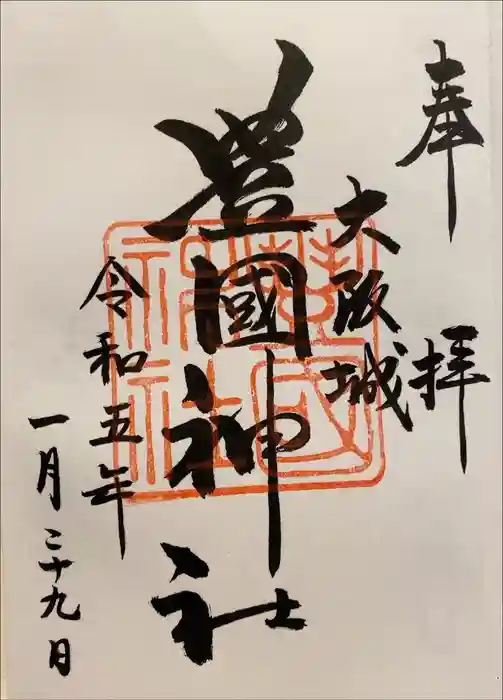 奉拝
大阪城
豊國神社
令和五年
一月二十九日